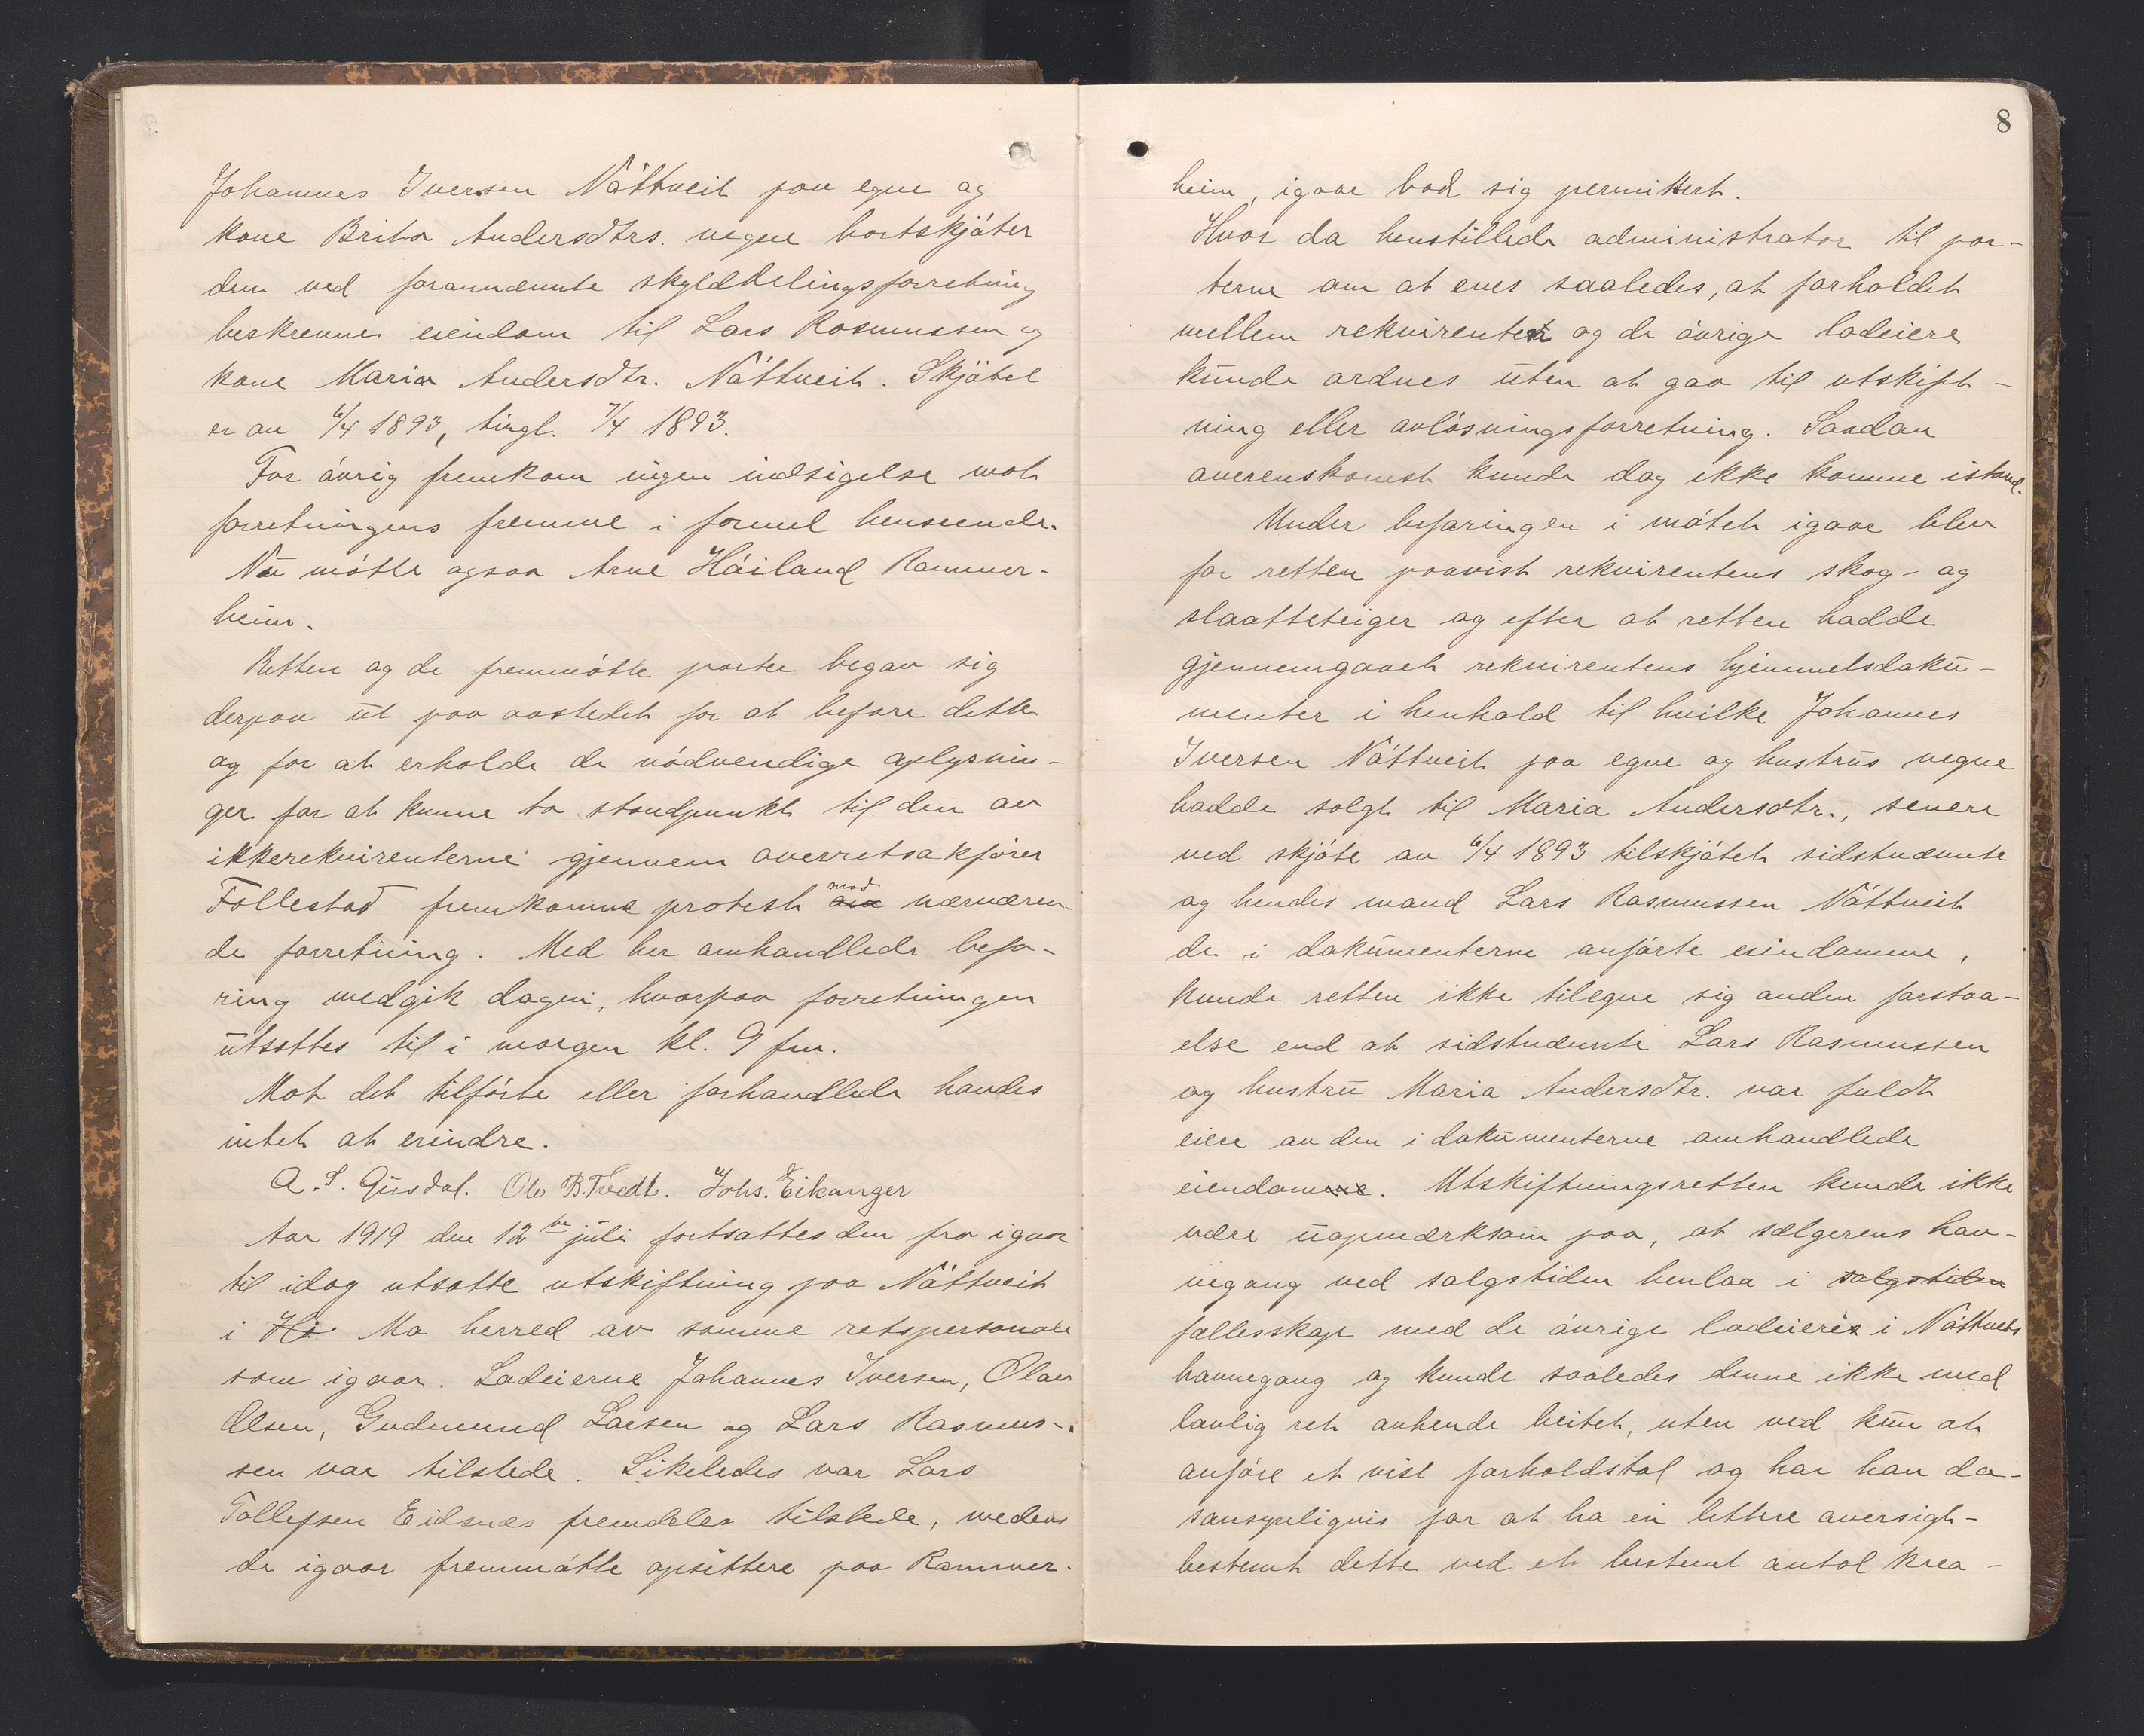 Johannes Iversen Nåttveit paa egne og
kone Brita Andersdtrs. vegne bortskjöter
den ved forannævnte skylddelingsforretning
beskrevne eiendom til Lars Rasmussen og
kone Maria Andersdtr. Nåttveit. Skjötet
er av 6/4 1893, tingl. 7/4 1893.
For övrig fremkom ingen indsigelse mot
forretningens fremme i formel henseende.
Nu mötte ogsaa Arne Höiland Rammer-
heim.
Retten og de fremmötte parter begav sig
derpaa ut paa aastedet for at befare dette
og for at erholde de nödvendige oplysnin-
ger for at kunne ta standpunkt til den av
ikkerekvirenterne gjennem overretsakförer
Follestad fremkomne protest mod nærværen
de forretning. Med her omhandlede befa-
ring medgik dagen, hvorpaa forretningen
utsattes til i morgen kl. 9 fm.
Mot det tilförte eller forhandlede havdes
intet at erindre.
A. S. Gusdal. Ole B. Tvedt. Johs. Eikanger
Aar 1919 den 12te juli fortsattes den fra igaar
til idag utsatte utskiftning paa Nåttveit
i Ho Mo herred av samme retspersonale
som igaar. Lodeierne Johannes Iversen, Olav
Olsen, Gudmund Larsen og Lars Rasmus-
sen var tilstede. Likeledes var Lars
Tollefsen Eidsnes fremdeles tilstede, medens
de igaar fremmötte opsittere paa Rammer-
8
heim, igaar bad sig permittert.
Hvor da henstillede administrator til par-
terne om at enes saaledes, at forholdet
mellem rekvirenten og de övrige lodeiere
kunde ordnes uten at gaa til utskift-
ning eller avlösningsforretning. Saadan
overenskomst kunde dog ikke komme istand.
Under befaringen i mötet igaar blev
for retten paavist rekvirentens skog- og
slaatteteiger og efter at retten hadde
gjennemgaaet rekvirentens hjemmelsdoku-
menter i henhold til hvilke Johannes
Iversen Nåttveit paa egne og hustrus vegne
hadde solgt til Maria Andersdtr., senere
ved skjöte av 6/4 1893 tilskjötet sidstnævnte
og hendes mand Lars Rasmussen Nåttveit
de i dokumenterne anförte eiendomme,
kunde retten ikke tilegne sig anden forstaa-
else end at sidstnævnte Lars Rasmussen
og hustru Maria Andersdtr. var fuldt
eiere av den i dokumenterne omhandlede
eiendom. Utskiftningsretten kunde ikke
være uopmerksom paa, at sælgerens hav-
negang ved salgstiden henlaa i salgstiden
fællesskap med de övrige lodeiere i Nåttveits
havnegang og kunde saaledes denne ikke med
lovlig ret avhende beitet, uten ved kun at
anföre et vist forholdstal og har han da
sansynligvis for at ha en lettere oversigt
bestemt dette ved et bestemt antal krea-